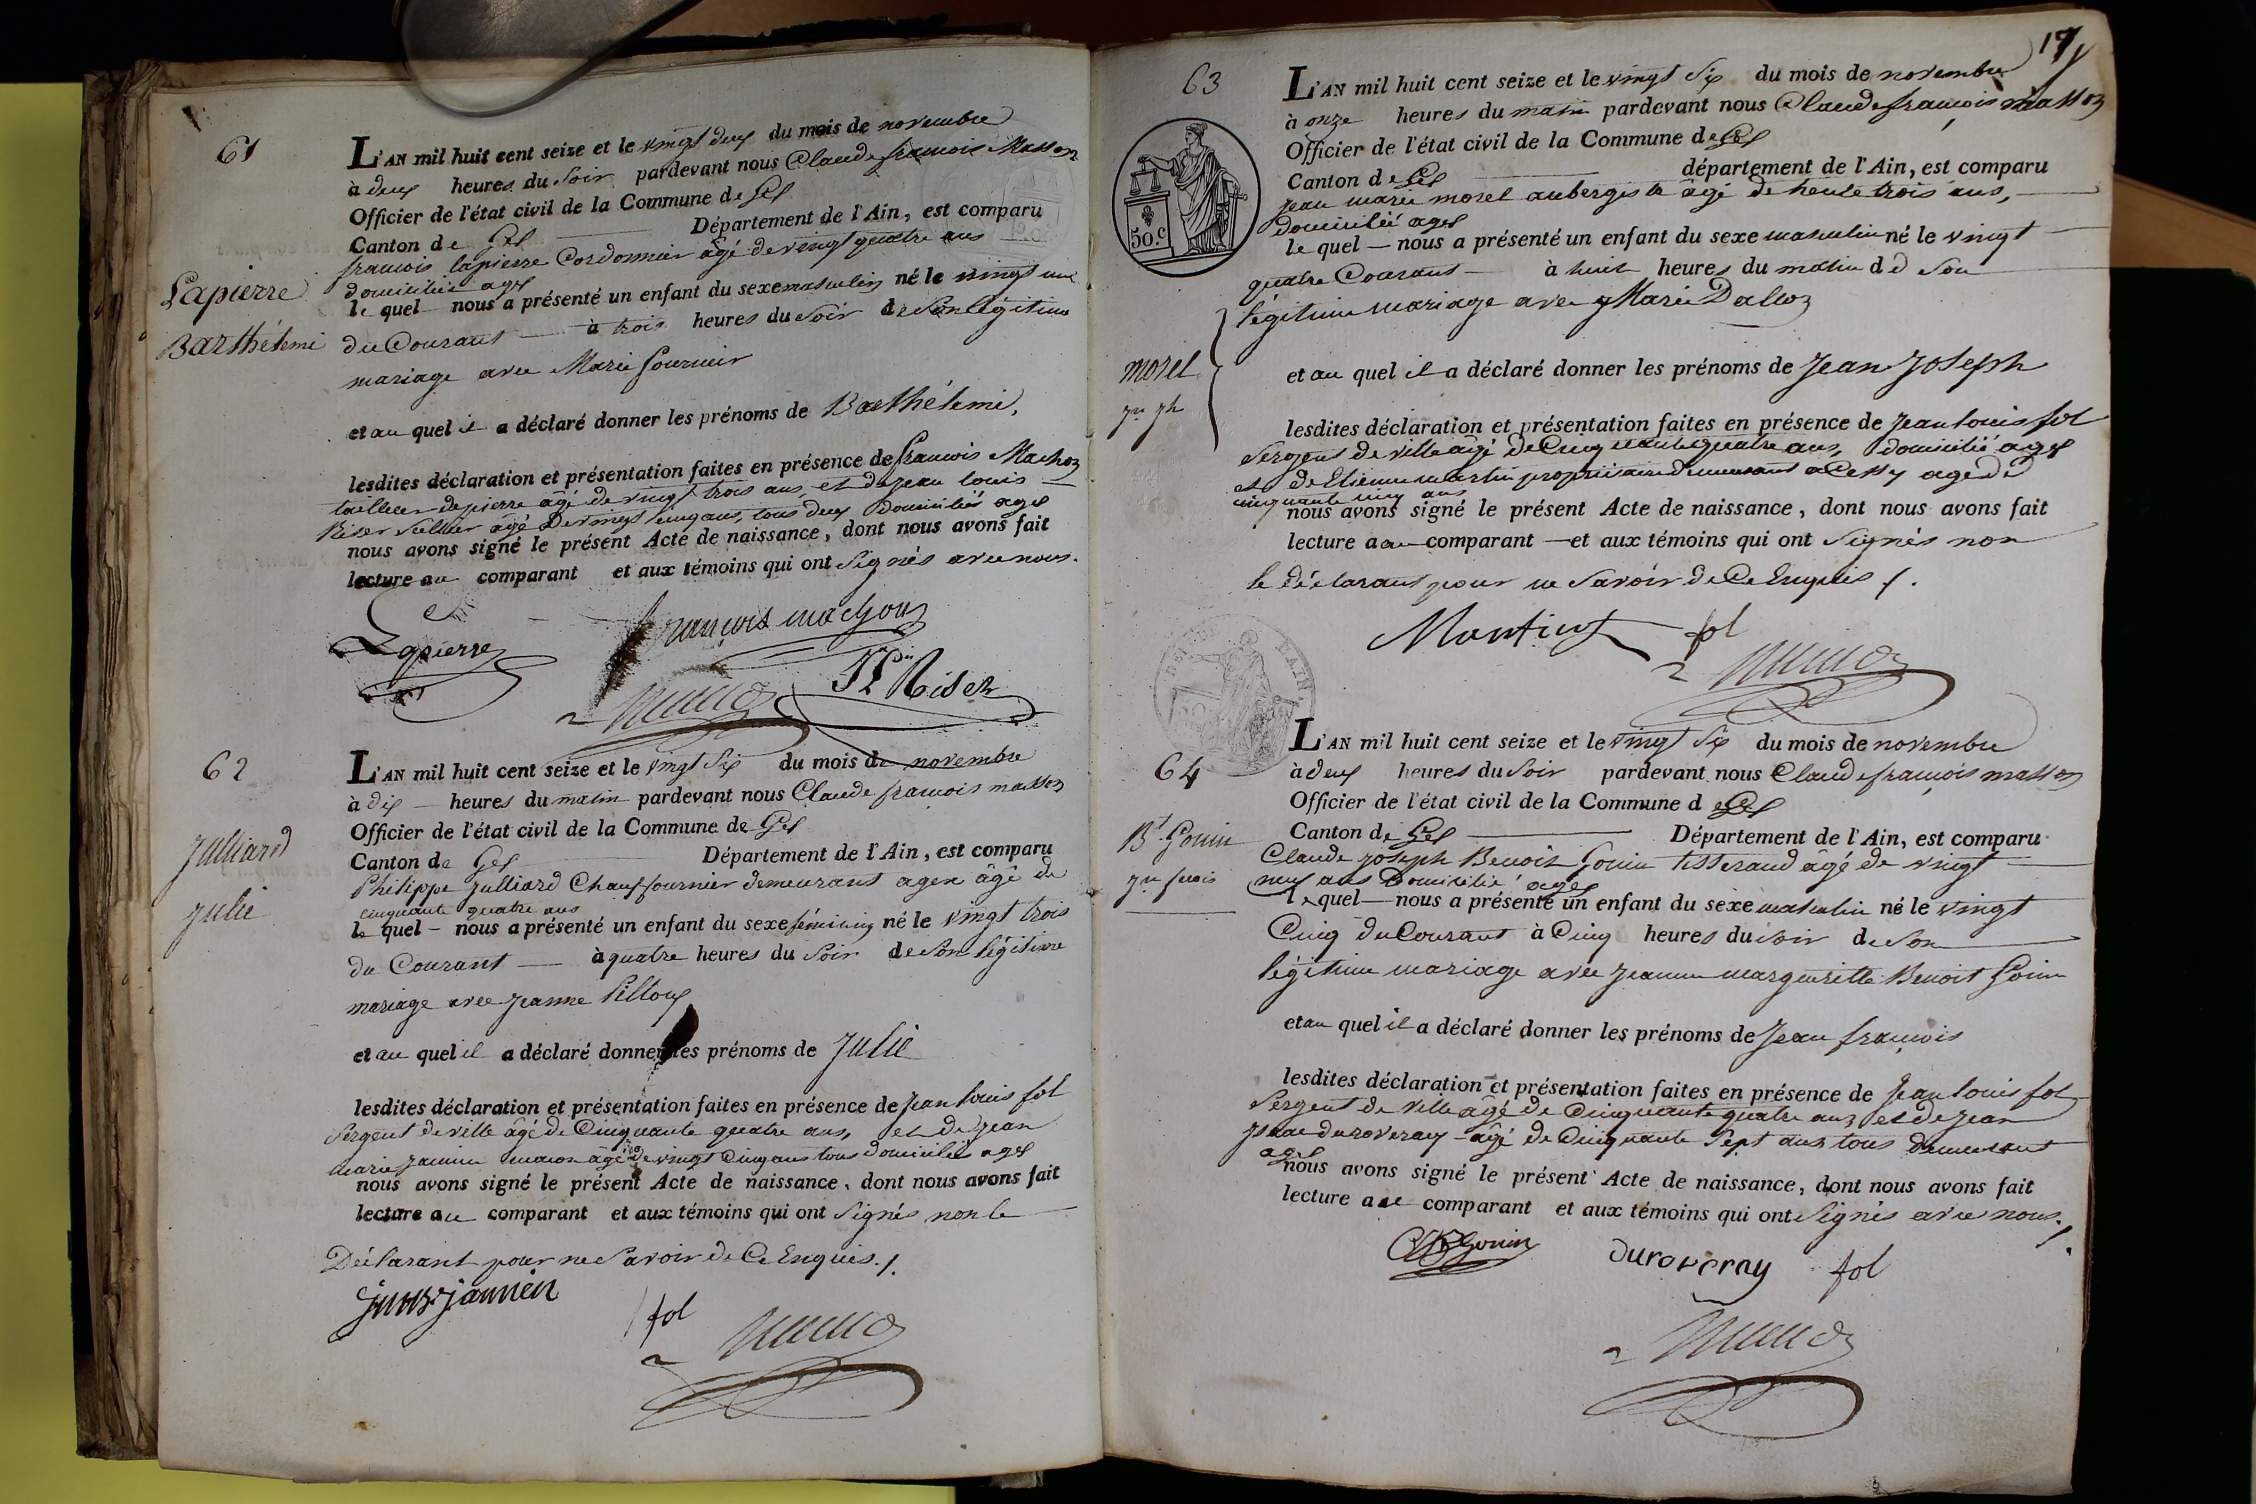 61
L'AN mil huit cent seize et le vingt deux du mois de novembre
à deux heures du Soir pardevant nous Claude françois Masson
Officier de l'état civil de la Commune de Gex
Canton de Gex Département de l'Ain, est comparu
francois lapierre Cordonnier âgé de vingt quatre ans
domicilié a gex
le quel nous a présenté un enfant du sexe masculin né le vingt un
Lapierre
Barthélemi
du Courant à trois heures du Soir de Son légitime
mariage avec Marie fournier
et au quel il a déclaré donner les prénoms de Barthélemi,
lesdites déclaration et présentation faites en présence de francois Machon
tailleur de pierre âgé de vingt trois ans, et de jean louis
Riser Sellier âgé de vingt cinq ans, tous deux Domiciliés a gex
nous avons signé le présent Acte de naissance, dont nous avons fait
lecture au comparant et aux témoins qui ont Signés avec nous.
Lapierre
françois machon
JL Riser
62
L'AN mil huit cent seize et le vingt Six du mois de novembre
à dix heures du matin pardevant nous Claude francois masson
Officier de l'état civil de la Commune de Gex
Canton de Gex Département de l'Ain, est comparu
Julliard
julie
Philippe Julliard Chauffournier demeurant a gex âgé de
cinquante quatre ans
le quel nous a présenté un enfant du sexe féminin né le vingt trois
du Courant à quatre heures du Soir de Son légitime
mariage avec jeanne Pilloux
et au quel il a déclaré donner les prénoms de Julie
lesdites déclaration et présentation faites en présence de jean louis fol
Sergent de ville âgé de Cinquante quatre ans, et de jean
marie jannin maçon agé de vingt Cinq ans tous domiciliés a gex
nous avons signé le présent Acte de naissance, dont nous avons fait
lecture au comparant et aux témoins qui ont Signés non le
Déclarant pour ne Savoir de Ce Enquis ./.
jannien
fol
17
63
L'AN mil huit cent seize et le vingt Six du mois de novembre
à onze heures du matin pardevant nous Claude françois masson
Officier de l'état civil de la Commune de Gex
Canton de Gex département de l'Ain, est comparu
50.c
jean marie morel aubergiste âgé de trente trois ans,
domicilié a gex
le quel nous a présenté un enfant du sexe masculin né le vingt
quatre Courant à huit heures du matin de Son
légitime mariage avec Marie Dalloz
morel
jn jh
et au quel il a déclaré donner les prénoms de Jean Joseph
lesdites déclaration et présentation faites en présence de jean louis fol
Sergent de ville âgé de Cinquante quatre ans, domicilié a gex
et de Etienne martin propriétaire demeurant a Cessy agé de
cinquante cinq ans
nous avons signé le présent Acte de naissance, dont nous avons fait
lecture au comparant et aux témoins qui ont Signés non
le déclarant pour ne Savoir de Ce Enquis ./.
Martin
fol
64
L'AN mil huit cent seize et le vingt Six du mois de novembre
à deux heures du Soir pardevant nous Claude françois masson
Officier de l'état civil de la Commune de Gex
Bt Gouin
jn fcois
Canton de Gex Département de l'Ain, est comparu
Claude joseph Benoit Gouin tisserand âgé de vingt
neuf ans Domicilié a gex
le quel nous a présenté un enfant du sexe masculin né le vingt
Cinq du Courant à Cinq heures du soir de Son
légitime mariage avec jeanne marguerite Benoit Gouin
et au quel il a déclaré donner les prénoms de Jean françois
lesdites déclaration et présentation faites en présence de Jean louis fol
Sergent de ville âgé de Cinquante quatre ans et de jean
isaac duroveray âgé de Cinquante Sept ans tous demeurant
a gex
nous avons signé le présent Acte de naissance, dont nous avons fait
lecture au comparant et aux témoins qui ont Signés avec nous ./.
Gouin
Duroveray
fol